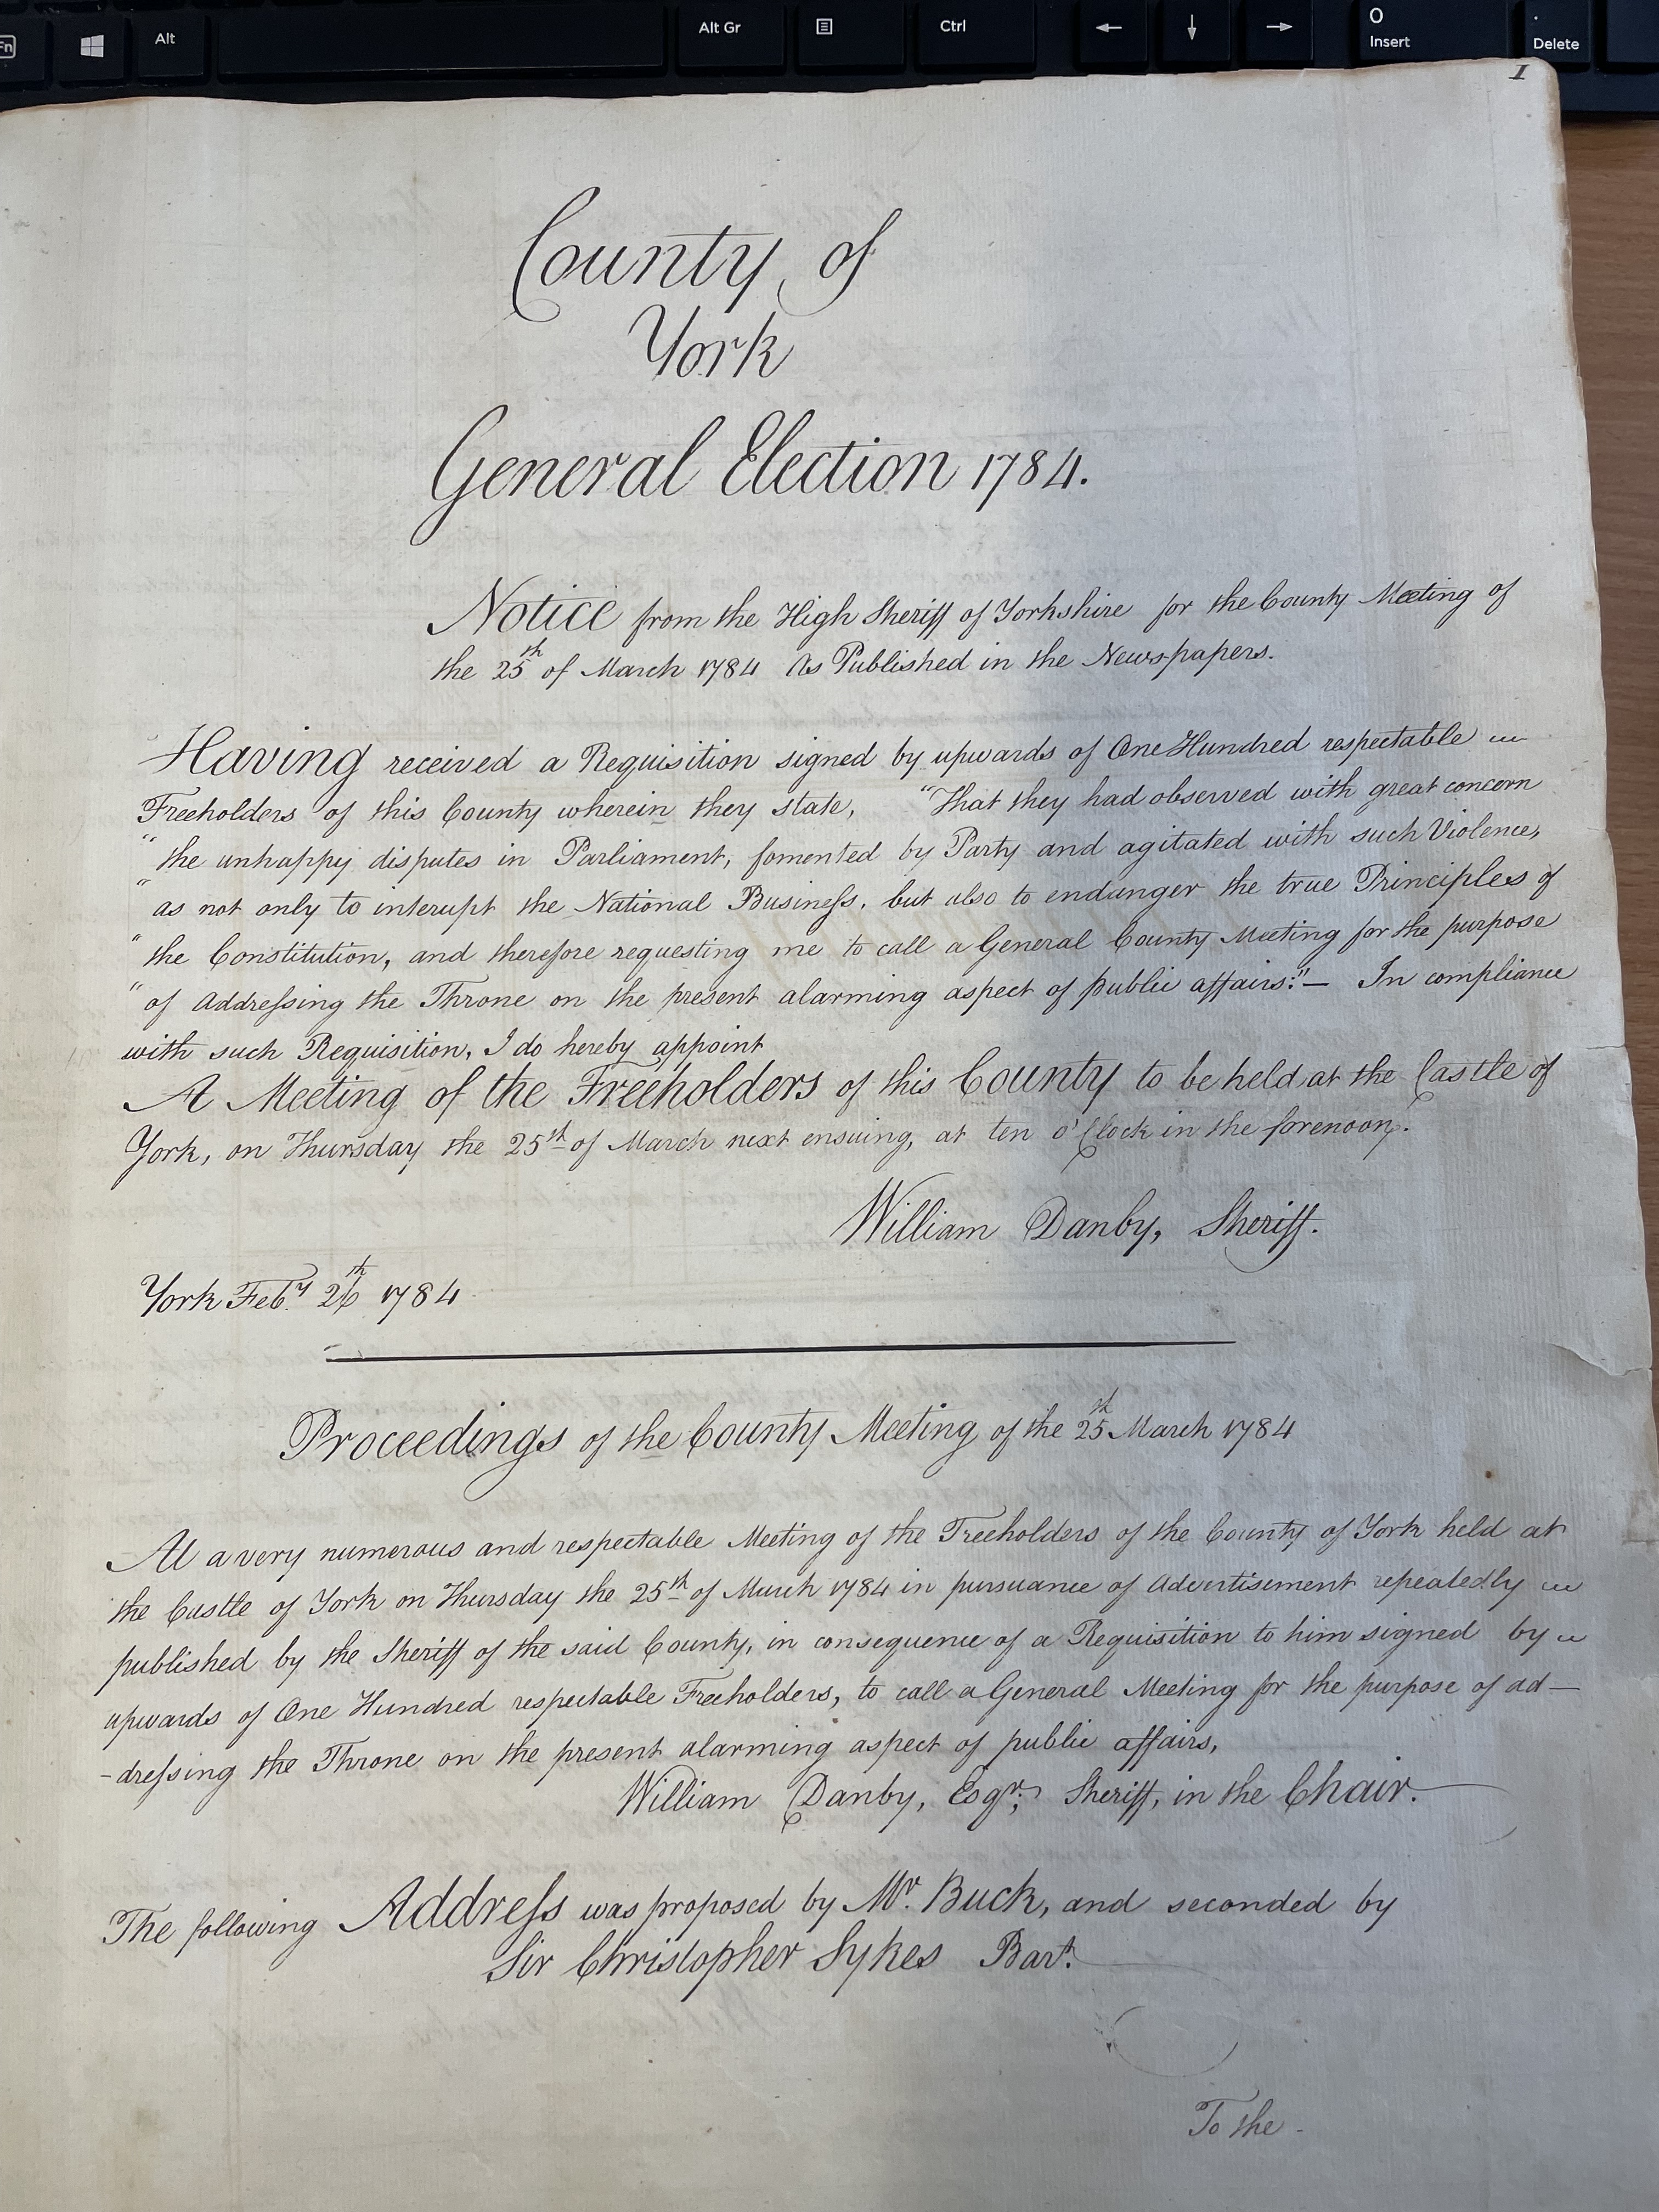 Fn
Alt
Alt Gr
Ctrl
←
↓
→
0
Insert
.
Delete
1
County of
York
General Election 1784.
Notice from the High Sheriff of Yorkshire for the County Meeting of
the 25th of March 1784 As Published in the Newspapers.
Having received a Requisition signed by upwards of One Hundred respectable
Freeholders of this County wherein they state, "That they had observed with great concern
"the unhappy disputes in Parliament, fomented by Party and agitated with such Violence,
"as not only to interupt the National Businеſs, but also to endanger the true Principles of
"the Constitution, and therefore requesting me to call a General County Meeting for the purpose
"of Addreſsing the Throne on the present alarming aspect of public affairs:"— In compliance
with such Requisition, I do hereby appoint
A Meeting of the Freeholders of this County to be held at the Castle of
York, on Thursday the 25th of March next ensuing, at ten o'Clock in the forenoon.
William Danby, Sheriff.
York Feby. 26th 1784
Proceedings of the County Meeting of the 25th March 1784
At a very numerous and respectable Meeting of the Freeholders of the County of York held at
the Castle of York on Thursday the 25th of March 1784 in pursuance of Advertisement repeatedly
published by the Sheriff of the said County, in consequence of a Requisition to him signed by
upwards of One Hundred respectable Freeholders, to call a General Meeting for the purpose of ad—
-dreſsing the Throne on the present alarming aspect of public affairs,
William Danby, Esqr.; Sheriff, in the Chair.
The following Addreſs was proposed by Mr. Buck, and seconded by
Sir Christopher Sykes Bart.
To the -